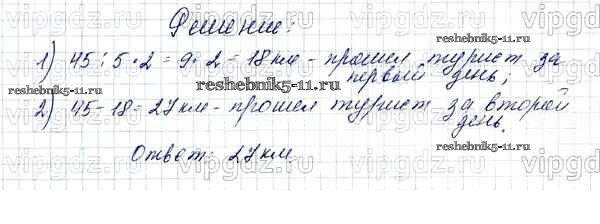 Решение:
1) 45 : 5 · 2 = 9 · 2 = 18 км - прошел турист за
первый день;
2) 45 - 18 = 27 км - прошел турист за второй
день.
Ответ: 27 км.
reshebnik5-11.ru
reshebnik5-11.ru
reshebnik5-11.ru
reshebnik5-11.ru
vipgdz
vipgdz
vipgdz
vipgdz